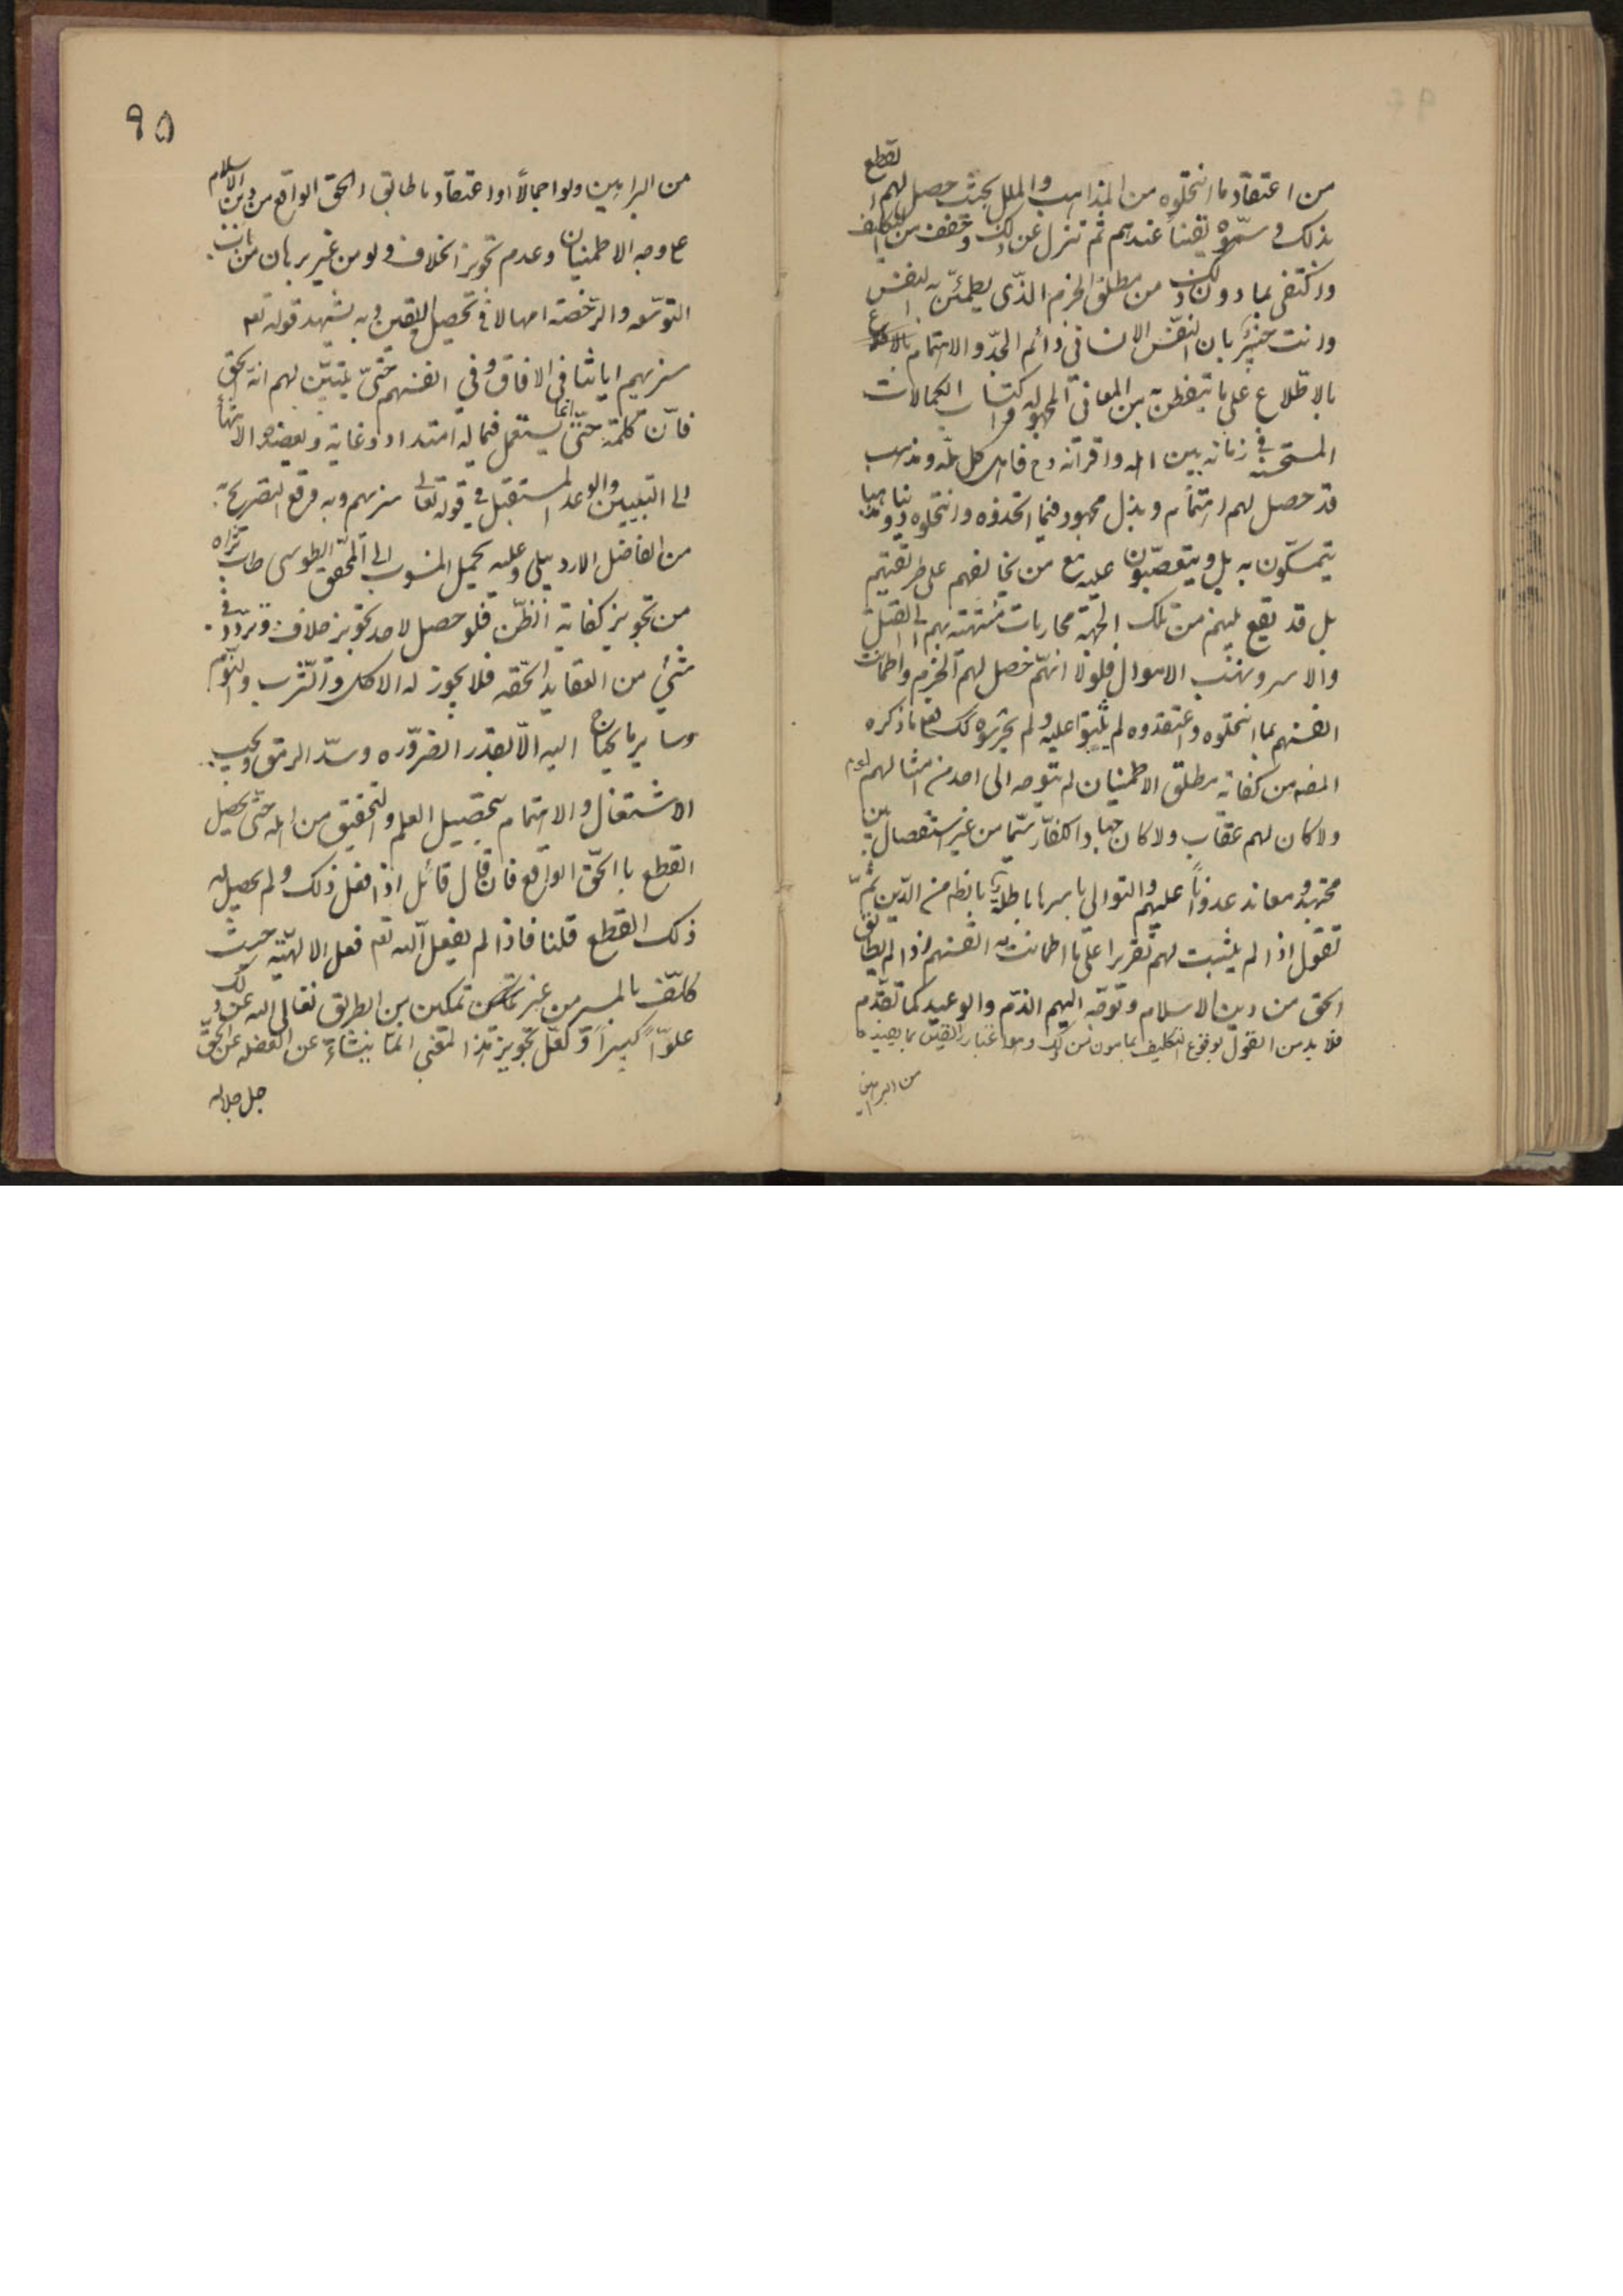 من اعتقاد ما انتحلوه من المذاهب والملل بحيث حصل لهم القطع
بذلك و سمّوه يقيناً عندهم ثم تنزل عن ذلك وخفف من التكليف
واكتفى بما دون ذلك من مطلق الجزم الذّى يطمئنّ به النفس
وانت خبير بان النفس الانسانى دائم الجدّ والاهتمام
بالاطّلاع على ما يتفطن به من المعانى المجهوله واكتساب الكمالات
المستحسنه فى زمانه بين اهله واقرانه وح فاهل كل ملّه ومذهب
قد حصل لهم اهتمام وبذل مجهود فيما اتخذوه وانتحلوه ديناً
يتمسّكون به بل ويتعصّبون عليه مع من يخالفهم على طريقتهم
بل قد يقع بينهم من تلك الجهة محاربات منتهية بهم الى القتل
والاسر ونهب الاموال فلولا انهّم حصل لهم الجزم واطمانت
انفسهم بما انتحلوه واعتقدوه لم يثبتوا عليه ولم ما ذكره
المضه من كفاية مطلق الاطمينان لم يتوجه الى احد من امثالهم لوم
ولا كان لهم عقاب ولا كان جهاد الكفّار سيّما من غير استفصال بين
مجتهد ومعاند عدواناً عليهم والتوالى باسرها باطلة من الدّين ثمّ
نقول اذا لم يثبت لهم تقريرا على ما اطمانت به انفسهم اذا لم يطابق
الحق من دين الاسلام وتوجّه اليهم الذمّ والوعيد كما تقدّم
فلا بد من القول بوقوع التكليف بما دون ذلك وهو اعتبار اليقين بما يفيده
من البراهين
٩٥
من البراهين ولو اجمالاً او اعتقاد ما طابق الحق الواقع من دين الاسلام
على وجه الاطمينان وعدم تجويز الخلاف ولو من غير برهان من باب
التوسّعه والرّخصة امهالا فى تحصيل اليقين وبه يشهد قوله تعه
سنريهم اياتنا فى الافاق وفى انفسهم حتىّ يتبيّن لهم انه الحق
فانّ كلمة حتىّ انما يستعمل فيما له امتداد وغاية ويعضده الانتهاء
الى التبيين والوعد المستقبل فى قوله تعالى سنريهم وبه وقع التصريح
من الفاضل الاردبيلى وعليه يحمل المنسوب الى المحقّق الطوسى طاب ثراه
من تجويز كفاية الظّن فلو حصل لاحد تجويز خلاف وتردّد فى
شئ من العقايد الحقّه فلا يجوز له الاكل والشّرب والنّوم
وساير ما يحتاج اليه الّا بقدر الضرّوره وسدّ الرمق ويجب
الاشتغال والاهتمام بتحصيل العلم والتحقيق من اهله حتّى يحصل
القطع بالحّق الواقع فان قال قائل اذا فعل ذلك ولم يحصل له
ذلك القطع قلنا فاذا لم يفعل الله تعه فعل الالهيّه حيث
كلّف بالمسير من غير تمكين من الطريق تعالى الله عن ذلك
علوّاً كبيراً ولعّل تجويز هذا المعنى انمّا ينشاء عن الغفله عن الحقّ
جل جلاله